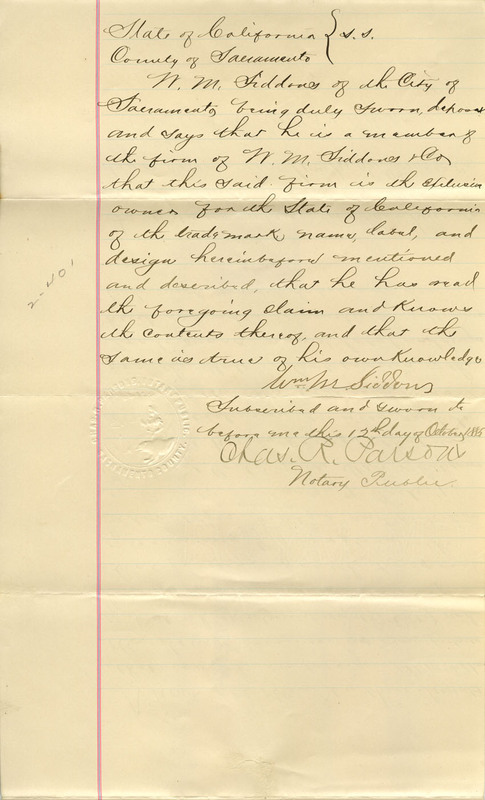 State of California } s.s.
County of Sacramento
W. M. Siddons of the City of
Sacramento, being duly sworn, deposes
and says that he is a member of
the firm of W. M. Siddons & Co,
that this said firm is the exclusive
owner for the State of California
of the trade mark name, label, and
design hereinbefore mentioned
and described, that he has read
the foregoing claim and knows
the contents thereof, and that the
same is true of his own knowledge
Wm. M. Siddons
Subscribed and sworn to
before me this 12th day of October
Chas. R. Parsons
Notary Public.
2-401